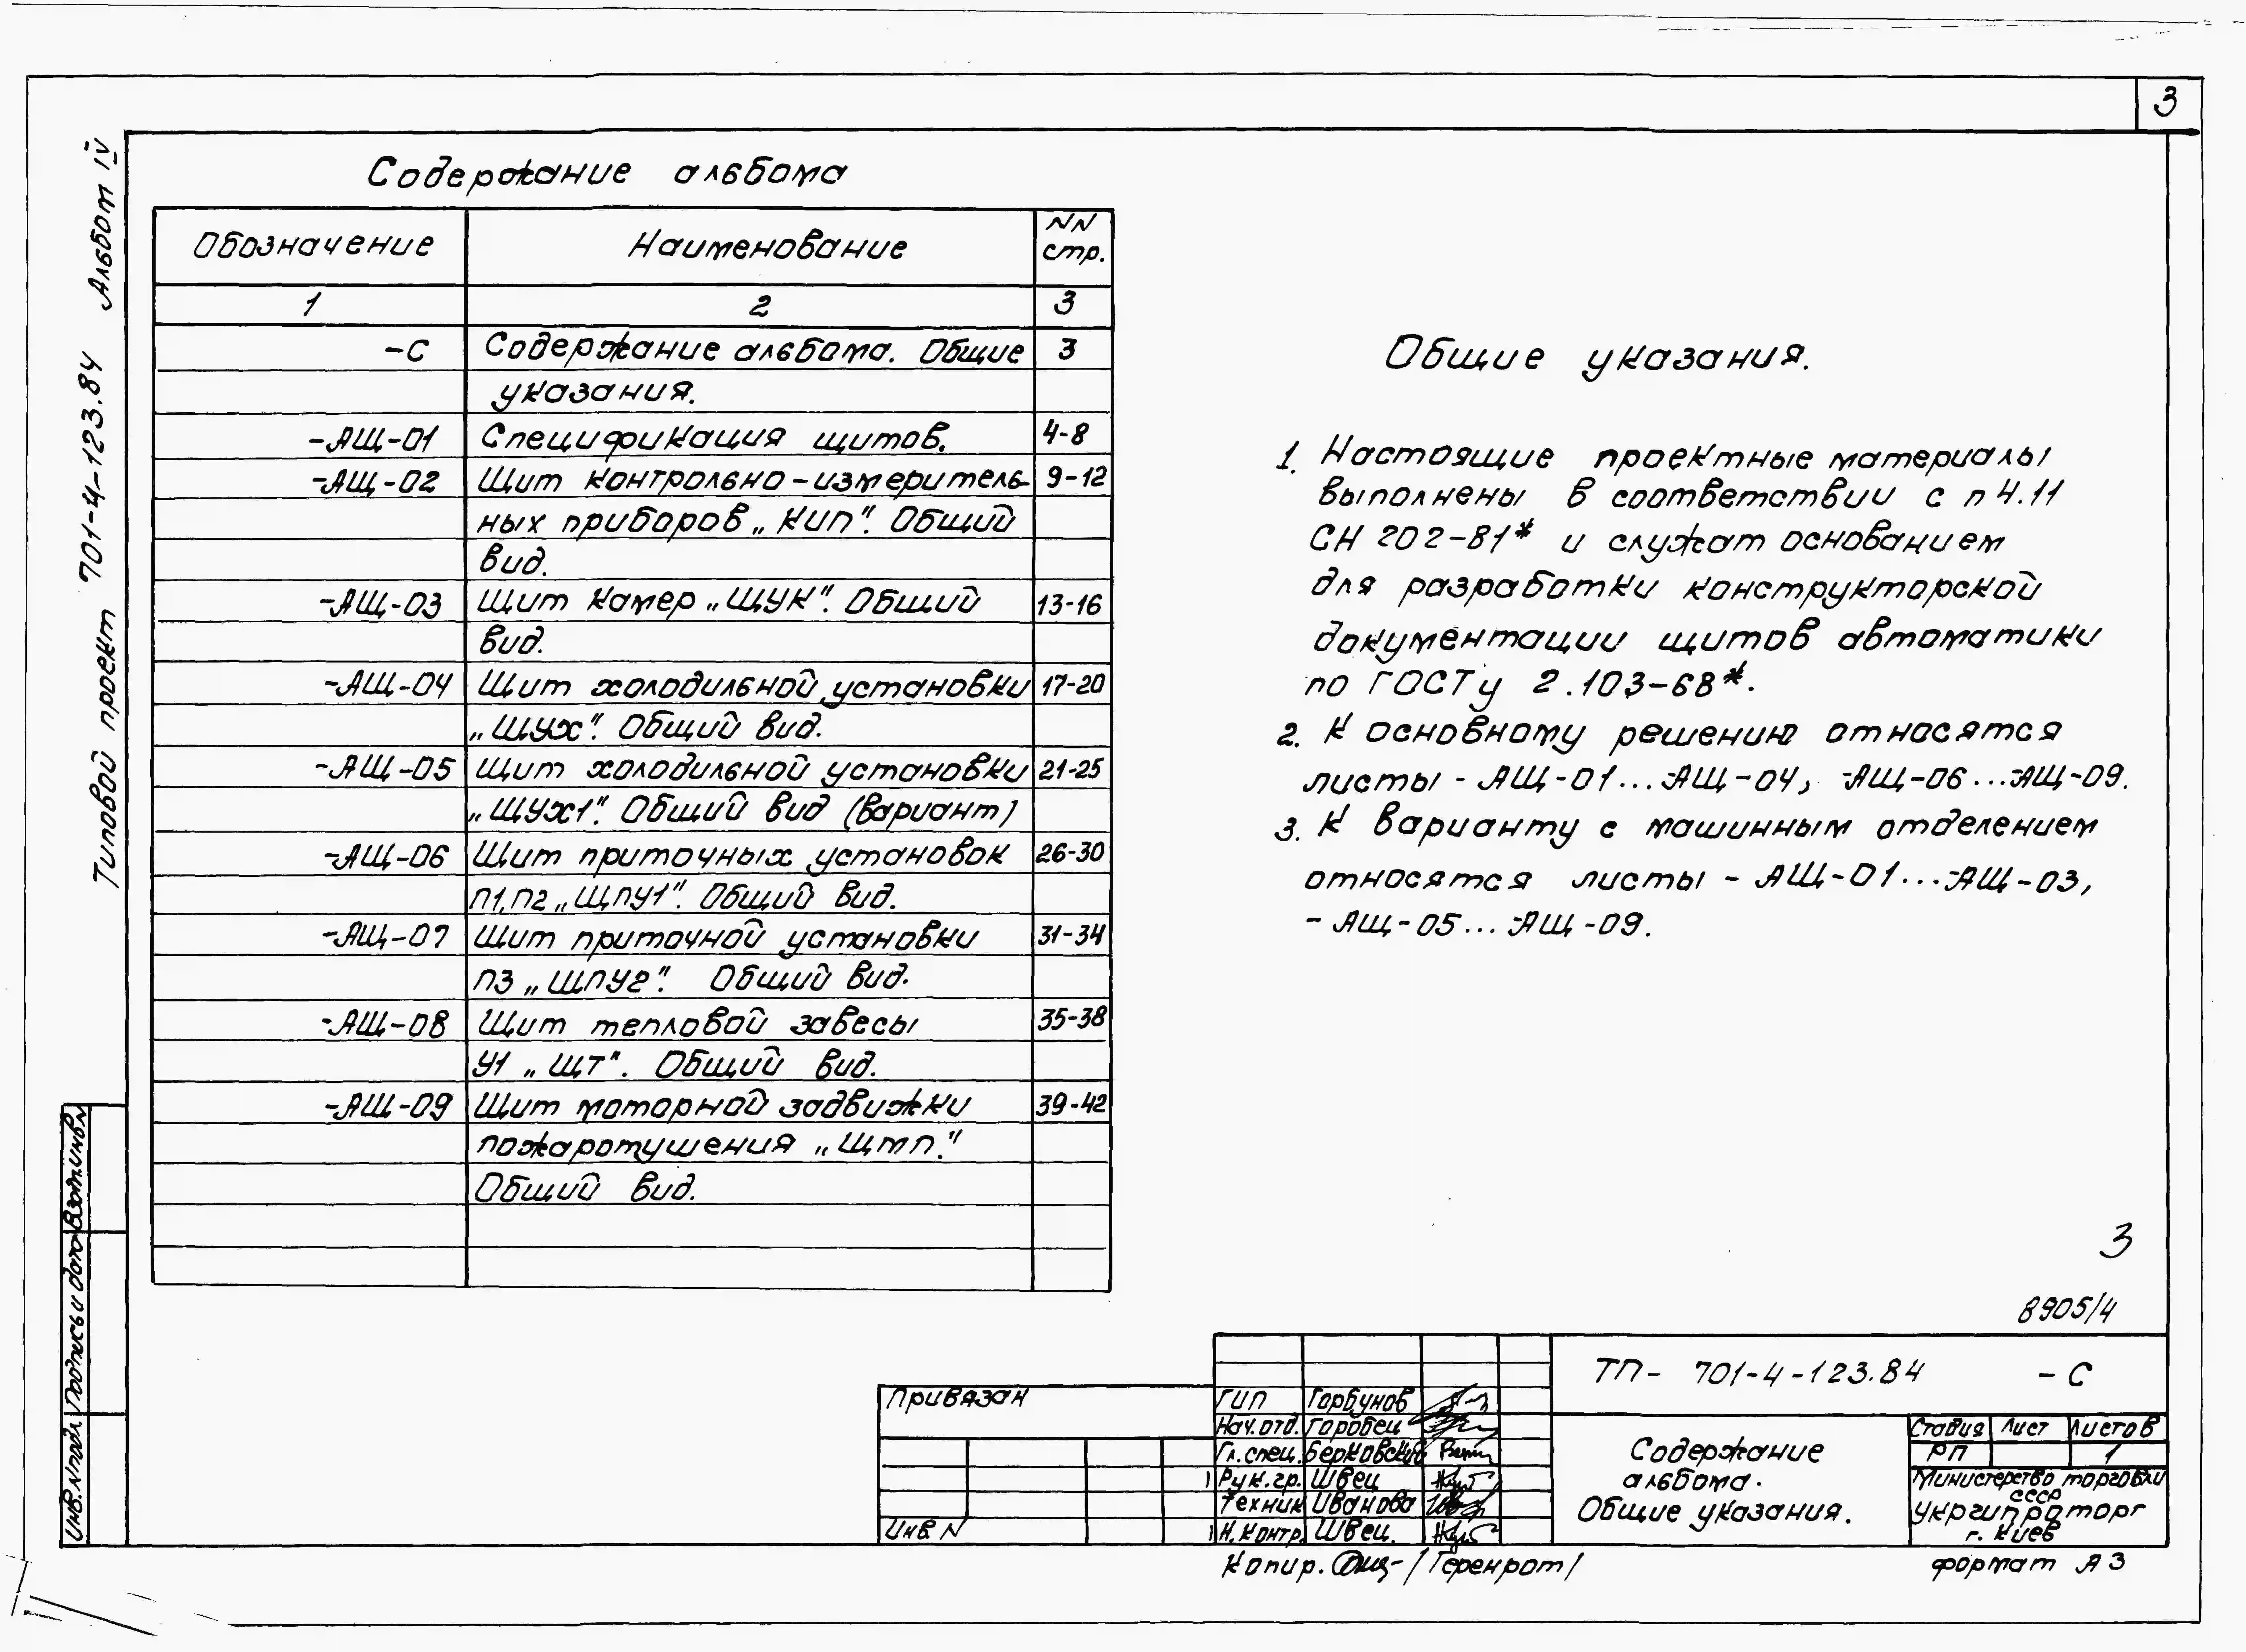 3
Типовой проект 701-4-123.84 Альбом IV
Содержание альбома
Обозначение Наименование NN стр.
1 2 3
-С Содержание альбома. Общие 3
указания.
-АЩ-01 Спецификация щитов. 4-8
-АЩ-02 Щит контрольно-измеритель- 9-12
ных приборов „КИП". Общий
вид.
-АЩ-03 Щит камер „ЩУК". Общий 13-16
вид.
-АЩ-04 Щит холодильной установки 17-20
„ЩУХ". Общий вид.
-АЩ-05 Щит холодильной установки 21-25
„ЩУХ1". Общий вид (вариант)
-АЩ-06 Щит приточных установок 26-30
П1,П2 „ЩПУ1". Общий вид.
-АЩ-07 Щит приточной установки 31-34
П3 „ЩПУ2". Общий вид.
-АЩ-08 Щит тепловой завесы 35-38
У1 „ЩТ". Общий вид.
-АЩ-09 Щит моторной задвижки 39-42
пожаротушения „Щмп."
Общий вид.
Общие указания.
1. Настоящие проектные материалы
выполнены в соответствии с п 4.11
СН 202-81* и служат основанием
для разработки конструкторской
документации щитов автоматики
по ГОСТу 2.103-68*.
2. К основному решению относятся
листы - АЩ-01...-АЩ-04, -АЩ-06...-АЩ-09.
3. К варианту с машинным отделением
относятся листы - АЩ-01...-АЩ-03,
- АЩ-05...-АЩ-09.
3
8905/4
Инв. N подл. Подпись и дата Взам. инв. N
Привязан
Инв N
ГИП Горбунов
Нач. отд. Горобец
Гл. спец. Берковский
Рук. гр. Швец
Техник Иванова
Н. контр. Швец.
ТП- 701-4-123.84 -С
Содержание
альбома.
Общие указания.
Стадия Лист Листов
РП 1
Министерство торговли
СССР
Укргипроторг
г. Киев
Копир. /Геренрот/
формат А3